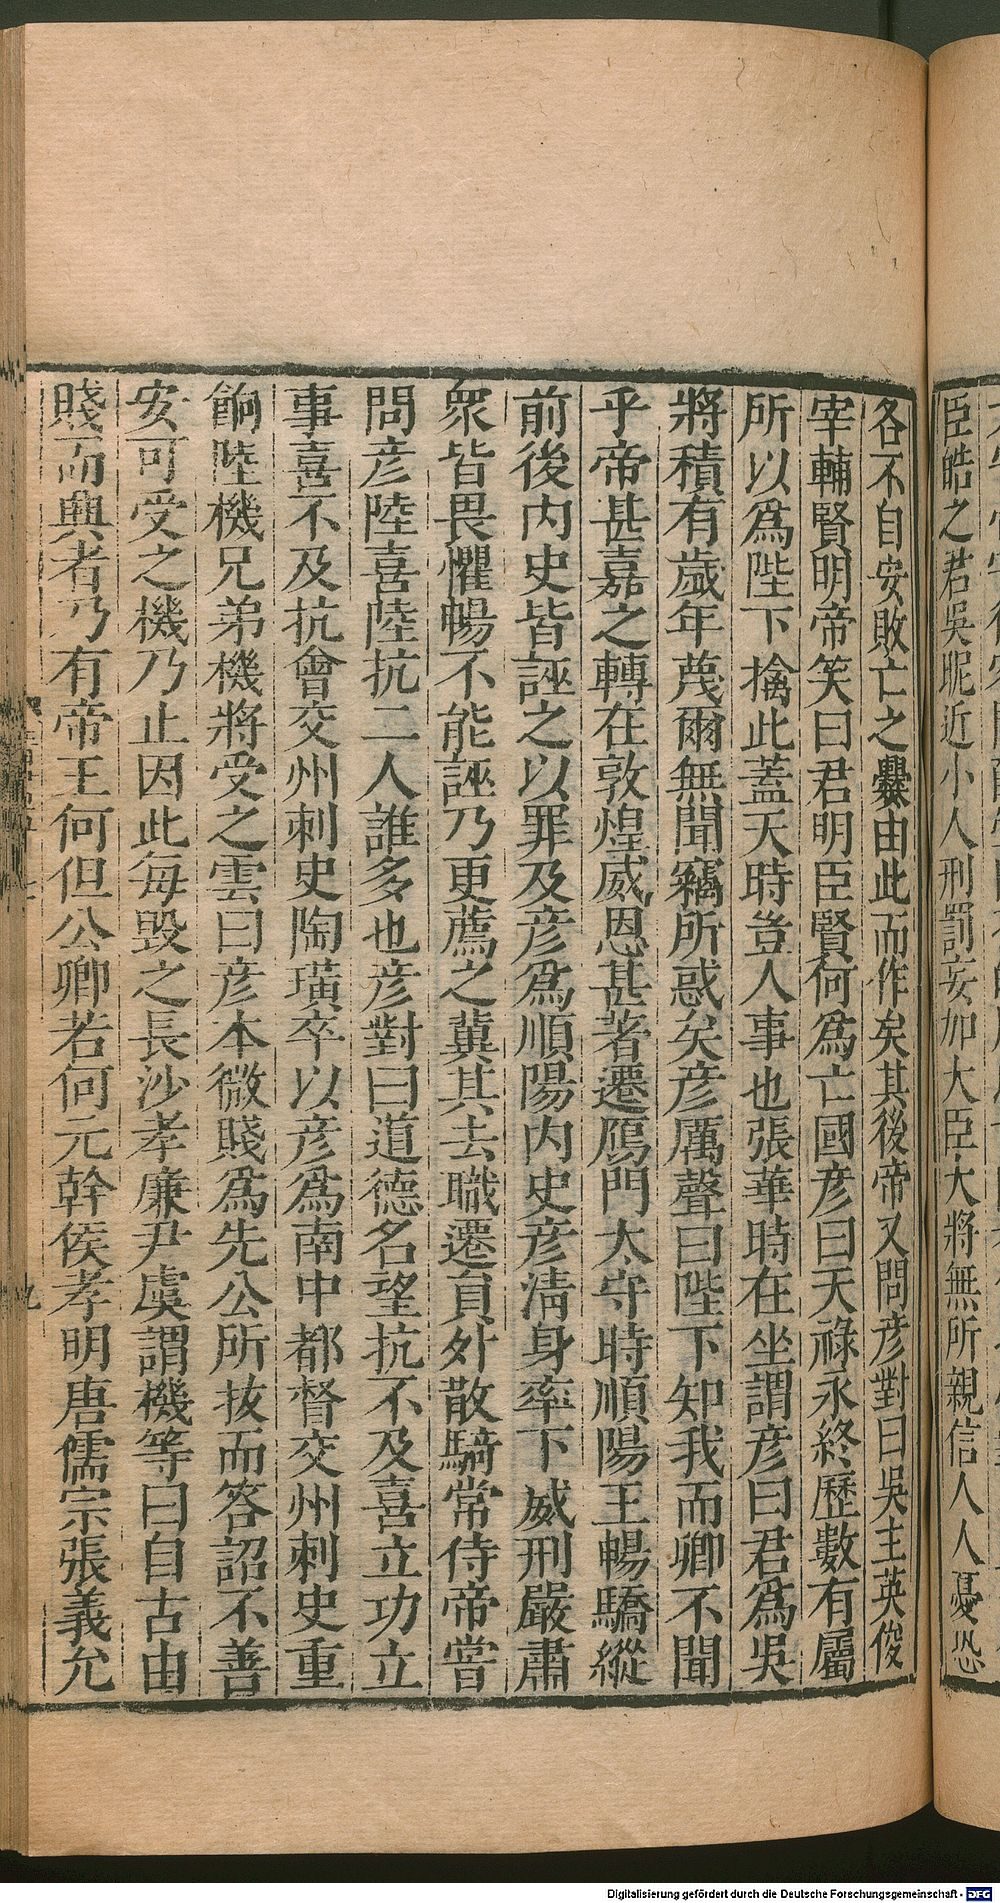 臣皓之君吳昵近小人刑罰妄加大臣大將無所親信人人憂恐
各不自安敗亡之釁由此而作矣其後帝又問彦對曰吳主英俊
宰輔賢明帝笑曰君明臣賢何爲亡國彦曰天祿永終歷數有屬
所以爲陛下擒此蓋天時豈人事也張華時在坐謂彦曰君爲吳
將積有歲年蔑爾無聞竊所惑矣彦厲聲曰陛下知我而卿不聞
乎帝甚嘉之轉在敦煌威恩甚著遷鴈門太守時順陽王暢驕縱
前後内史皆誣之以罪及彦爲順陽内史彦淸身率下威刑嚴肅
衆皆畏懼暢不能誣乃更薦之冀其去職遷貟外散騎常侍帝嘗
問彦陸喜陸抗二人誰多也彦對曰道德名望抗不及喜立功立
事喜不及抗會交州刺史陶璜卒以彦爲南中都督交州刺史重
餉陸機兄弟機將受之雲曰彦本微賤爲先公所拔而答詔不善
安可受之機乃止因此每毀之長沙孝廉尹虞謂機等曰自古由
賤而興者乃有帝王何但公卿若何元幹侯孝明唐儒宗張義允
Digitalisierung gefördert durch die Deutsche Forschungsgemeinschaft - DFG